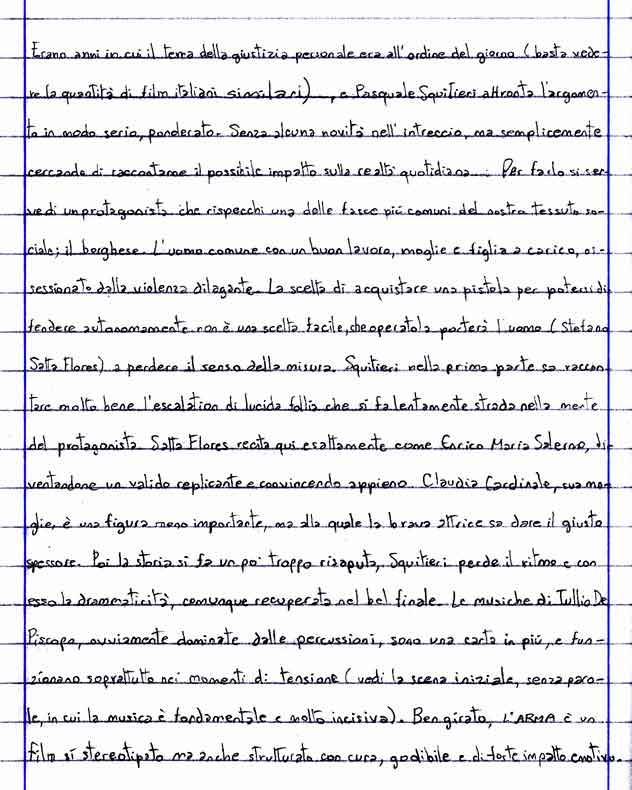 Erano anni in cui il tema della giustizia personale era all'ordine del giorno (basta vede-
re la quantità di film italiani similari), e Pasquale Squitieri affronta l'argomen-
to in modo serio, ponderato. Senza alcuna novità nell'intreccio, ma semplicemente
cercando di raccontarne il possibile impatto sulla realtà quotidiana... Per farlo si ser-
ve di un protagonista che rispecchi una delle fasce più comuni del nostro tessuto so-
ciale; il borghese. L'uomo comune con un buon lavoro, moglie e figlia a carico, os-
sessionato dalla violenza dilagante. La scelta di acquistare una pistola per potersi di-
fendere autonomamente non è una scelta facile, che operatola porterà l'uomo (Stefano
Satta Flores) a perdere il senso della misura. Squitieri nella prima parte sa raccon-
tare molto bene l'escalation di lucida follia che si fa lentamente strada nella mente
del protagonista. Satta Flores recita qui esattamente come Enrico Maria Salerno, di-
ventandone un valido replicante e convincendo appieno. Claudia Cardinale, sua mo-
glie, è una figura meno importante, ma alla quale la brava attrice sa dare il giusto
spessore. Poi la storia si fa un po' troppo risaputa, Squitieri perde il ritmo e con
esso la drammaticità, comunque recuperata nel bel finale. Le musiche di Tullio De
Piscopo, ovviamente dominate dalle percussioni, sono una carta in più, e fun-
zionano soprattutto nei momenti di tensione (vedi la scena iniziale, senza paro-
le, in cui la musica è fondamentale e molto incisiva). Ben girato, L'ARMA è un
film sì stereotipato ma anche strutturato con cura, godibile e di forte impatto emotivo.